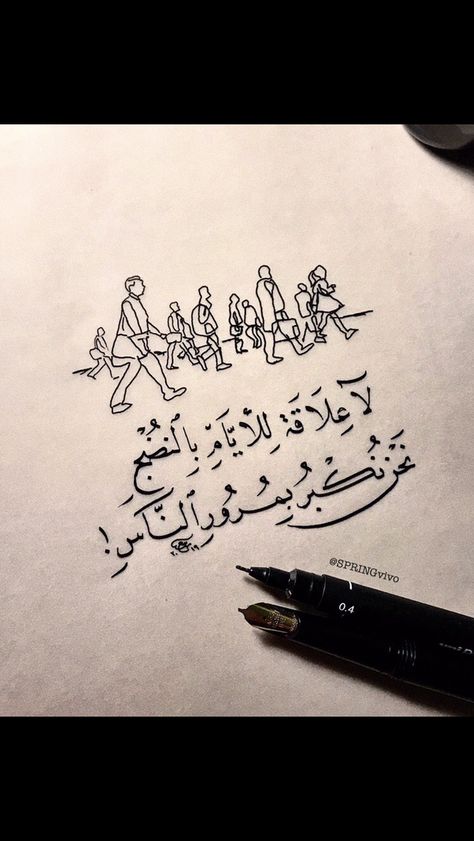 لَا عِلَاقَةَ لِلأَيَّامِ بِالنُّضْجِ
نَحْنُ نَكْبُرُ بِمُرُورِ النَّاسِ !
@SPRINGvivo
0.4